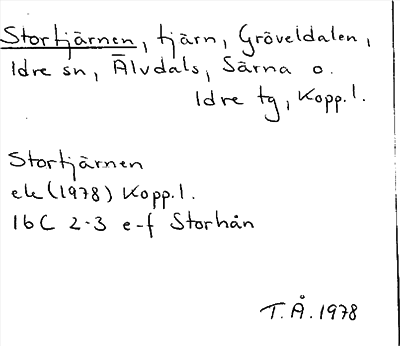 Stortjärnen, tjärn, Gröveldalen,
Idre sn, Älvdals, Särna o.
Idre tg, Kopp. l.
Stortjärnen
ek (1978) Kopp. l.
16C 2-3 e-f Storhån
T. Å. 1978